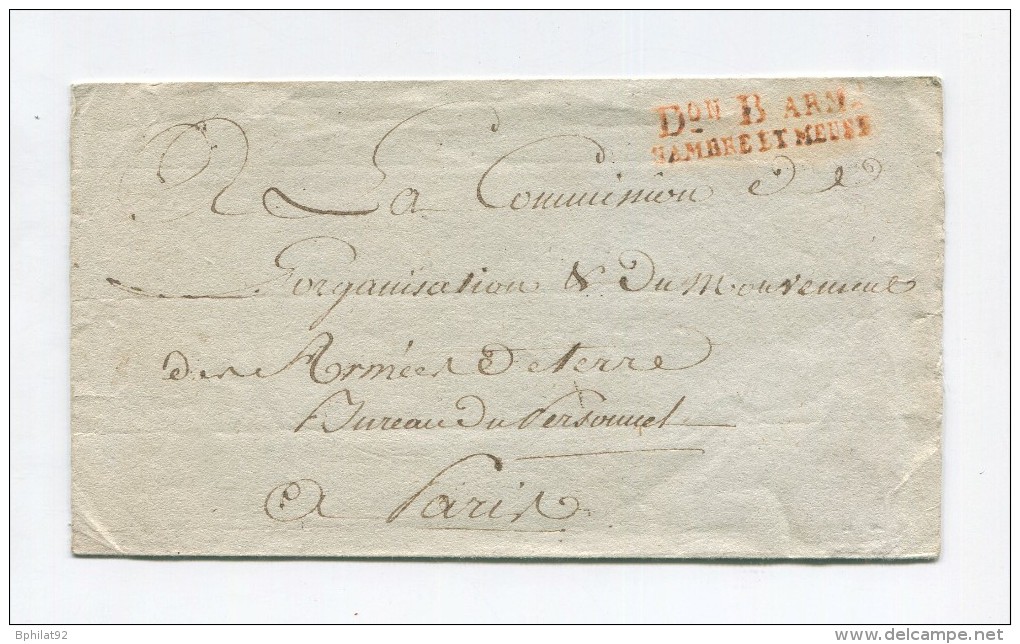 Don B ARM
SAMBRE ET MEUSE
A La Commission de
L'organisation & du mouvement
des Armées de terre
Bureau du Personnel
a Paris
Bphilat92
www.delcampe.net